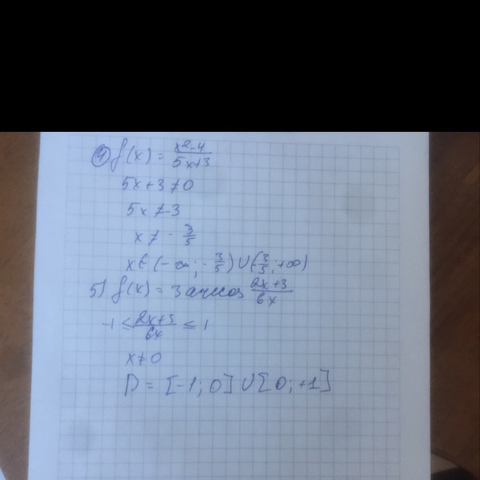 4) f(x) = x²-4 / 5x+3
5x+3≠0
5x≠-3
x≠ -3/5
x∈(-∞; -3/5)∪(3/5; +∞)
5) f(x) = 3 arccos 2x+3 / 6x
-1 ≤ 2x+3 / 6x ≤ 1
x≠0
D = [-1; 0]∪[0; +1]